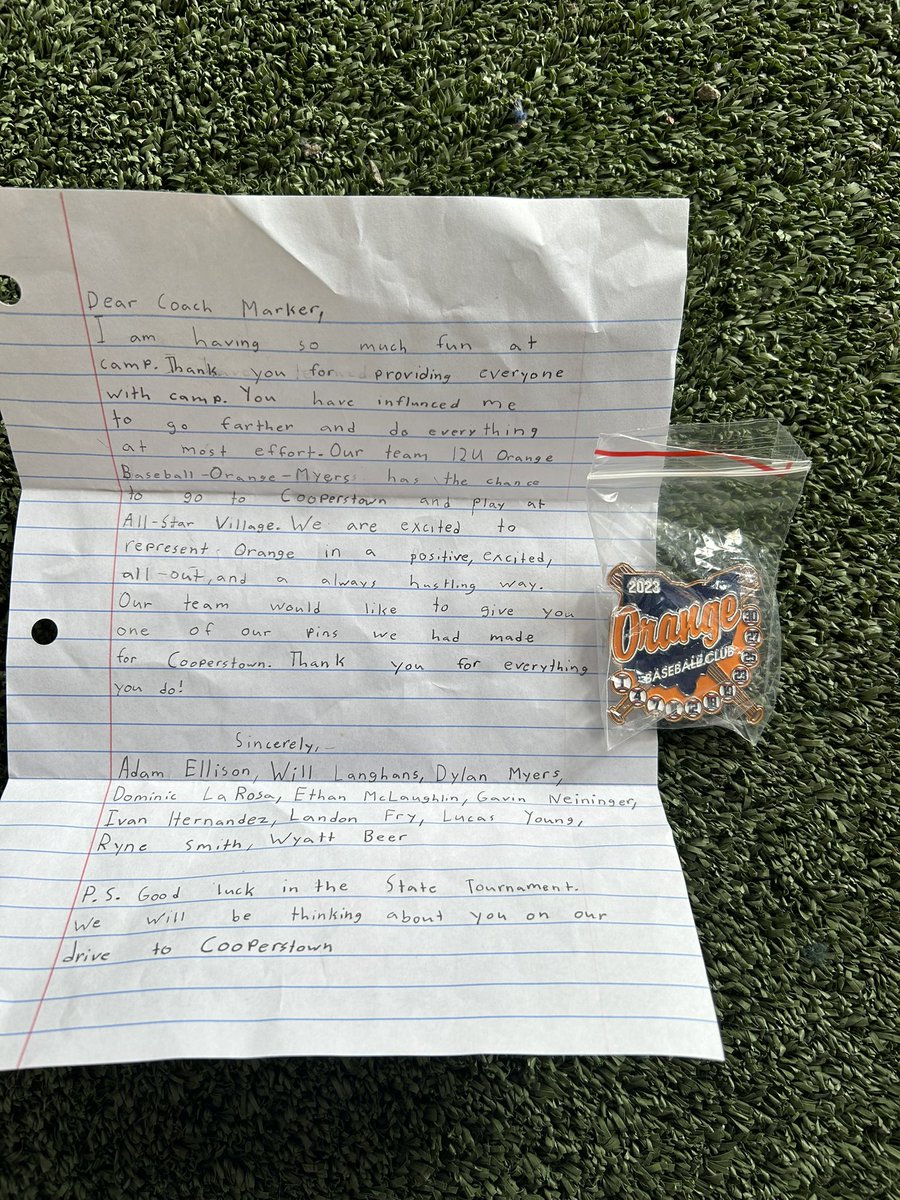 Dear Coach Marker,
I am having so much fun at
camp. Thank you for providing everyone
with camp. You have influnced me
to go farther and do everything
at most effort. Our team 12U Orange
Baseball-Orange-Myers has the chance
to go to Cooperstown and play at
All-Star Village. We are excited to
represent Orange in a positive, excited,
all-out, and a always hustling way.
Our team would like to give you
one of our pins we had made
for Cooperstown. Thank you for everything
you do!
Sincerely,
Adam Ellison, Will Langhans, Dylan Myers,
Dominic LaRosa, Ethan McLaughlin, Gavin Neininger,
Ivan Hernandez, Landon Fry, Lucas Young,
Ryne Smith, Wyatt Beer
P.S. Good luck in the State Tournament.
We will be thinking about you on our
drive to Cooperstown
2023
Orange
BASEBALL CLUB
1 4 7